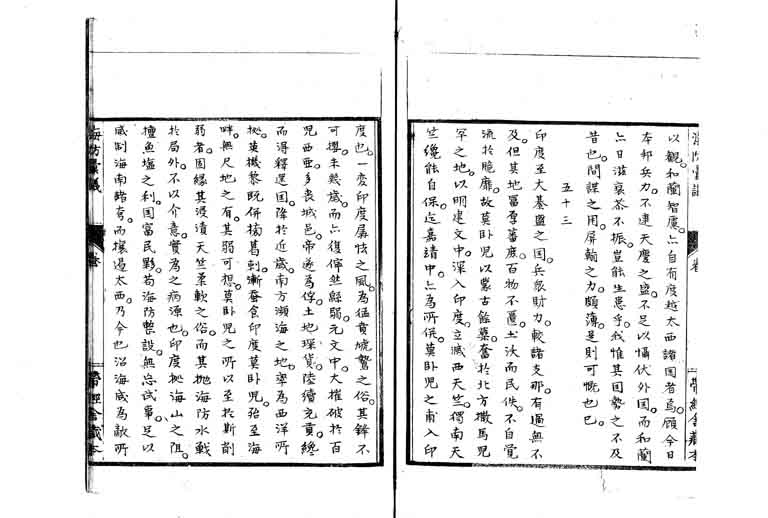 海防彙議
卷
帶經舍藏本
以觀。和蘭智慮。亦自有度越太西諸国者焉。顧今日
本邦兵力。不逮天慶之盛。不足以懾伏外国。而和蘭
亦日滋衰苶不振。豈能生患乎。我惟其国勢之不及
昔也。間諜之用。屏翰之力。頗薄。是則可慨也已。
五十三
印度至大基盛之国。兵衆財力。較諸支那。有過無不
及。但其地冨厚蕃庶。百物不匱。土沃而民佚。不自覺
流於脆靡。故莫卧児以蒙古餘蘖。奮於北方撒馬児
罕之地。以明建文中。深入印度。立滅西天竺。獨南天
竺纔能自保。迄嘉靖中。亦為所併。莫卧児之甫入印
度也。一変印度孱怯之風。為猛賁虓驁之俗。其鋒不
可攖。未幾歳。而亦復偉然緜弱。元文中。大權破於百
児西亜。多喪城邑。帝遂為俘。土地琛貨。陸續充賁。纔
而得釋還国。降於近歳。南方瀕海之地。率為西洋所
拠。英機黎既併榜葛剌。漸蚕食印度。莫卧児。殆至海
畔無尺地之有。其弱可想。莫卧児之所以至於斯削
弱者。固緣其浸漬天竺柔軟之俗。而其拋海防水戦
於局外。不以介意。實為之病源也。印度拠海山之阻。
擅魚塩之利。国富民夥。苟海防整設。無忘試事。足以
威制海南諸夸。而攘過太西。乃今也沿海咸為敵所
海防彙議
卷
帶經舍藏本